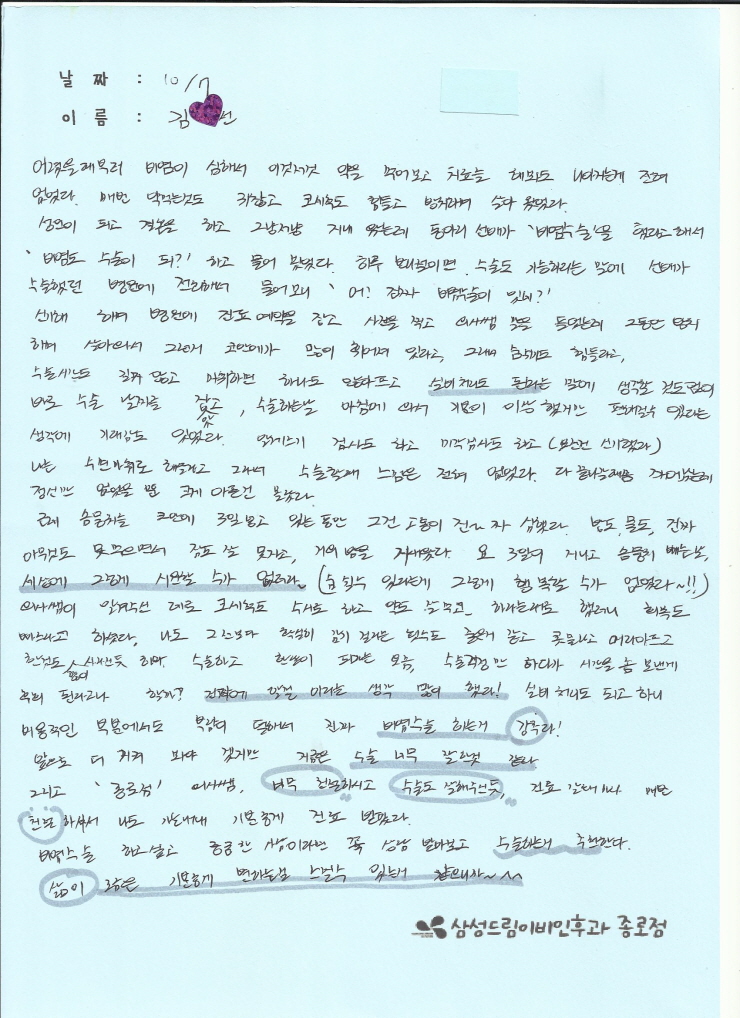 날 짜 : 10/7
이 름 : 김 선
어렸을때부터 비염이 심해서 이것저것 약을 먹어보고 치료를 해봐도 나아지는게 전혀
없었다. 매번 약먹는것도 귀찮고 코세척도 힘들고 방치하며 살아 왔었다.
성인이 되고 결혼을 하고 그냥저냥 지내 왔는데 동아리 선배가 '비염수술'을 했다고 해서
'비염도 수술이 돼?' 하고 물어 봤었다. 하루 만이면 수술도 가능하다는 말에 선배가
수술했던 병원에 전화해서 물어보니 '어? 진짜 비염수술이 있네?'
신기해 하며 병원에 진료예약을 잡고 사진을 찍고 의사쌤 말을 들었는데 그동안 방치
하며 살아와서 그런지 코안에가 많이 휘어져 있다고, 그래서 숨쉬기도 힘들다고,
수술시간도 길지 않고 마취하면 하나도 안아프고 실비처리도 된다는 말에 생각할 것도 없이
바로 수술 날짜를 잡고, 수술하는날 아침에 와서 기분이 이상했지만 편해질수 있다는
생각에 기대감도 있었다. 알레르기 검사도 하고 미각검사도 하고 (완전 신기했다)
나는 수면마취로 해주시고 그래서 수술할때 느낌은 전혀 없었다. 다 끝나고
정신만 없었을 뿐 크게 아픈건 몰랐다.
근데 솜뭉치를 코안에 3일 넣고 있는 동안 그건 고통이 진짜 심했다. 밥도, 물도, 진짜
아무것도 못먹으면서 잠도 잘 못자고, 거의 밤을 지새웠다. 요 3일이 지나고 솜뭉치 빼는날,
세상에 그렇게 시원할 수가 없더라 (숨 쉴수 있다는게 그렇게 행복할 수가 없었다~!!)
의사쌤이 알려주신 대로 코세척도 수시로 하고 약도 잘 먹고, 하라는대로 했더니 회복도
빠르다고 하셨다, 나도 그전보다 확실히 감기 걸리는 횟수도 줄은거 같고 콧물나고 머리아프고
한것도 많이 사라진듯 하며. 수술하고 한달이 되가는 요즘, 수술걱정만 하다가 시간을 좀 보낸게
후회 된다고나 할까? 진작에 할걸 이라는 생각 많이 했다! 실비 처리도 되고 하니
비용적인 부분에서도 부담이 덜해서 진짜 비염수술 하는거 강추다!
앞으로 더 지켜 봐야 겠지만 지금은 수술 너무 잘한것 같다
그리고 '종로점' 의사쌤, 너무 친절하시고 수술도 잘해주신듯, 진료 갈때마다 매번
친절 하셔서 나도 가는내내 기분좋게 진료 받았다.
비염수술 하고싶고 궁금한 사람이라면 꼭 상담 받아보고 수술하는거 추천한다.
삶이 기분좋게 변하는걸 느낄수 있는거 같으니까~^^
삼성드림이비인후과 종로점